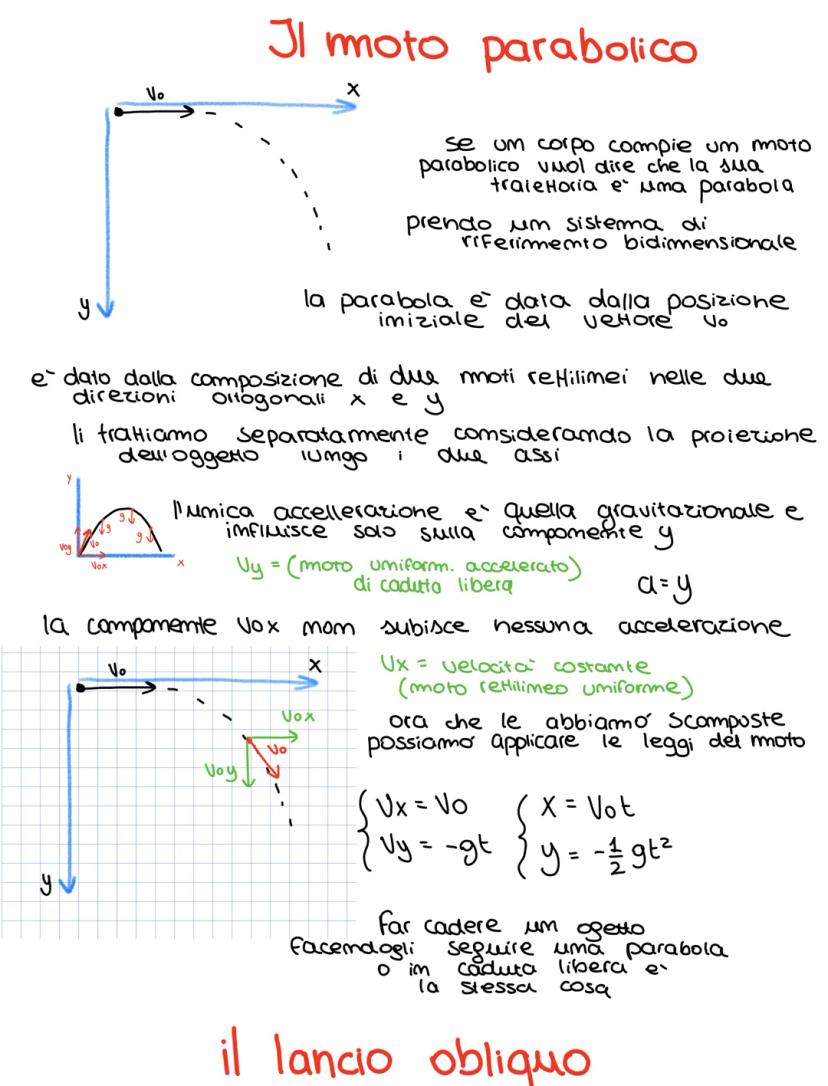 Il moto parabolico
V₀
x
se un corpo compie un moto
parabolico vuol dire che la sua
traiettoria e' una parabola
prendo un sistema di
riferimento bidimensionale
y
la parabola e' data dalla posizione
iniziale del vettore V₀
e' dato dalla composizione di due moti rettilinei nelle due
direzioni ortogonali x e y
li trattiamo separatamente considerando la proiezione
dell'oggetto lungo i due assi
y
g
g
g
V₀
V₀y
V₀x
x
l'unica accellerazione e' quella gravitazionale e
influisce solo sulla componente y
Vy = (moto uniform. accelerato)
di caduta libera
a = y
la componente V₀x non subisce nessuna accelerazione
V₀
x
Vx = velocita' costante
(moto rettilineo uniforme)
V₀x
V₀
V₀y
y
ora che le abbiamo scomposte
possiamo applicare le leggi del moto
{ Vx = V₀ { x = V₀t
Vy = -gt y = -1/2 gt²
far cadere un ogetto
facendogli seguire una parabola
o in caduta libera e'
la stessa cosa
il lancio obliquo